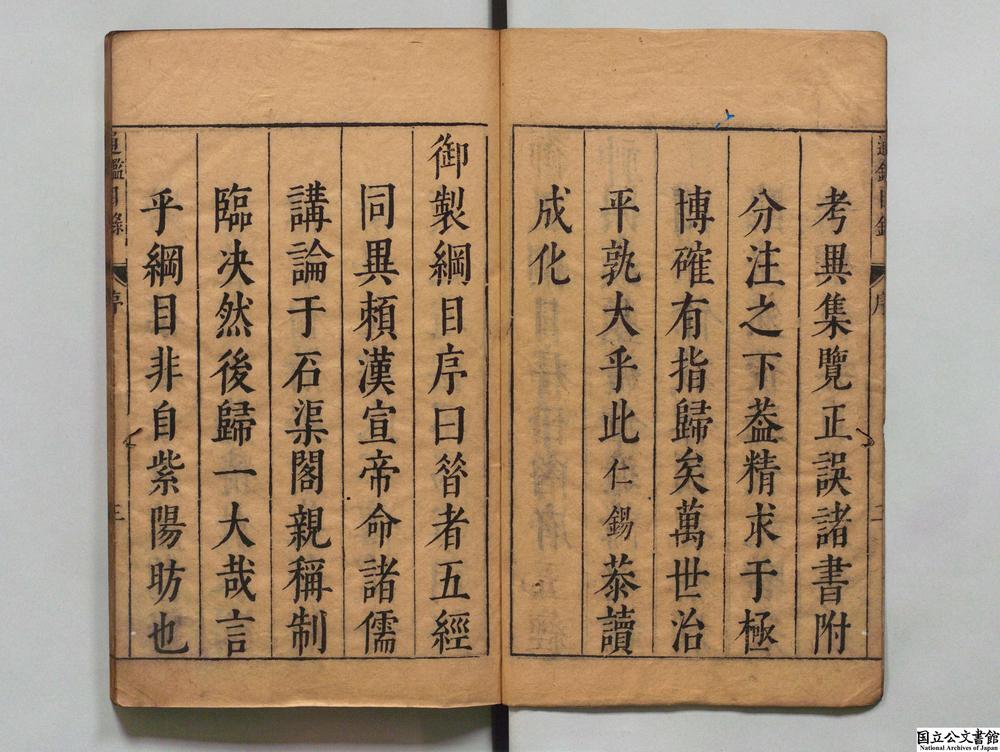 考異集覽正誤諸書附
分注之下葢精求于極
博確有指歸矣萬世治
平孰大乎此仁錫恭讀
成化
御製綱目序曰昝者五經
同異頼漢宣帝命諸儒
講論于石渠閣親稱制
臨决然後歸一大哉言
乎綱目非自紫陽昉也
通鑑目錄
序
三
国立公文書館
National Archives of Japan